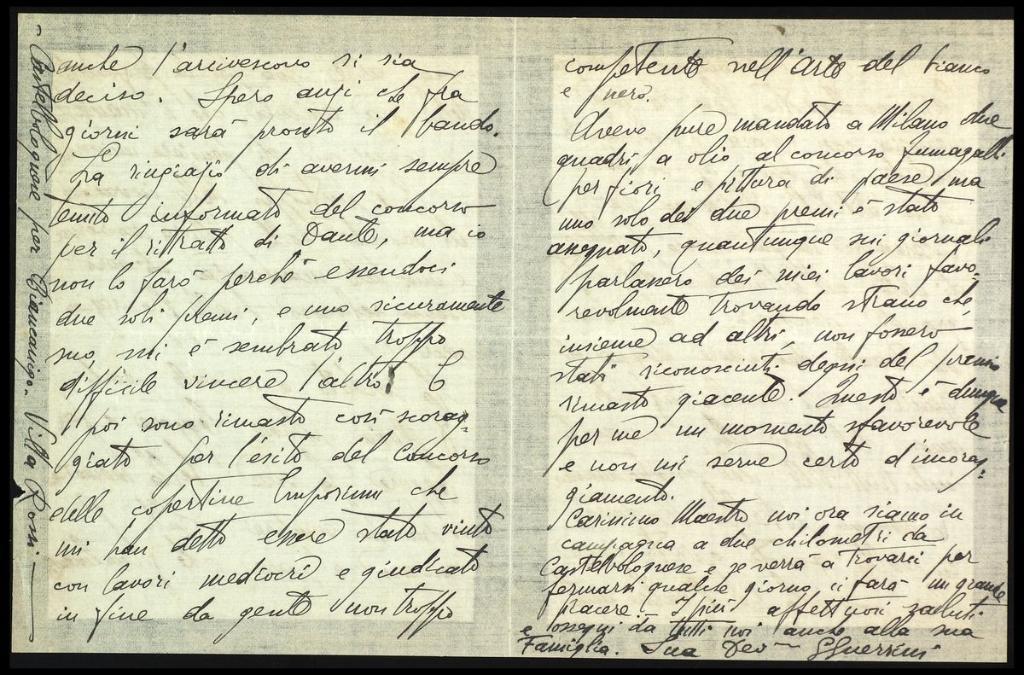 anche l'arcivescovo si sia
deciso. Spero anzi che fra
giorni sarà pronto il bando.
La ringrazio di avermi sempre
tenuto informato del concorso
per il ritratto di Dante, ma io
non lo farò perchè essendoci
due soli premi, e uno sicuramente
suo, mi è sembrato troppo
difficile vincere l'altro! E
poi sono rimasto così scorag-
giato per l'esito del Concorso
delle copertine che
mi han detto essere stato vinto
con lavori mediocri e giudicato
in fine da gente non troppo
competente nell'Arte del bianco
e nero.
Avevo pure mandato a Milano due
quadri a olio al concorso Fumagalli
per fiori e pittura di paese ma
uno solo dei due premi è stato
assegnato, quantunque sui giornali
parlassero dei miei lavori favo-
revolmente trovando strano che,
insieme ad altri, non fossero
stati riconosciuti degni del premio
rimasto giacente. Questo è dunque
per me un momento sfavorevole
e non mi serve certo d'incorag-
giamento.
Carissimo Maestro noi ora siamo in
campagna a due chilometri da
Castelbolognese e se verrà a trovarci per
fermarsi qualche giorno ci farà un grande
piacere. I più affettuosi saluti
e ossequi da tutti noi anche alla sua
Famiglia. Suo Dev GGuerrini
- Castelbolognese per Biancanigo. Villa Rossi -